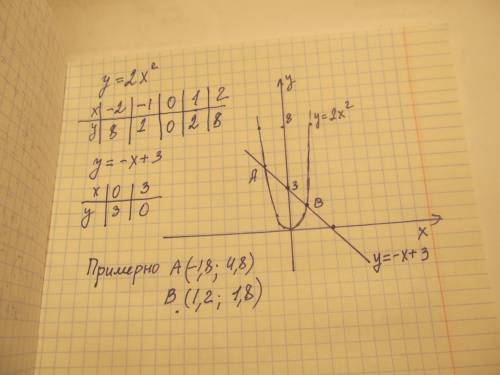 y = 2x²
x -2 -1 0 1 2
y 8 1 0 2 8
y = -x + 3
x 0 3
y 3 0
Примерно A (-1,8; 4,8)
B (1,2; 1,8)
y
8
y = 2x²
A
3
B
x
y = -x + 3